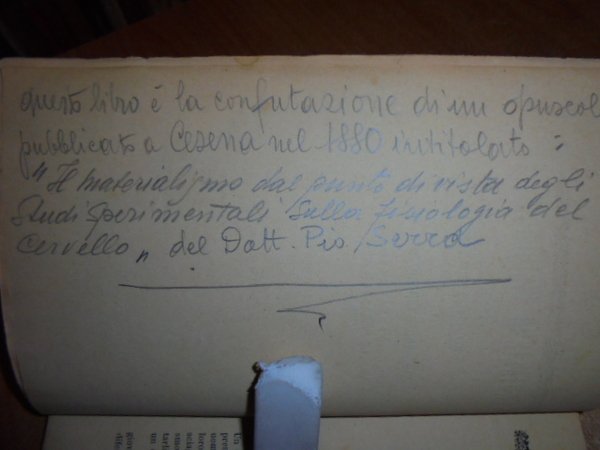 questo libro è la confutazione di un opuscol
pubblicato a Cesena nel 1880 intitolato:
"Il materialismo dal punto di vista degli
studi sperimentali sulla fisiologia del
cervello„ del Dott. Pio Serra